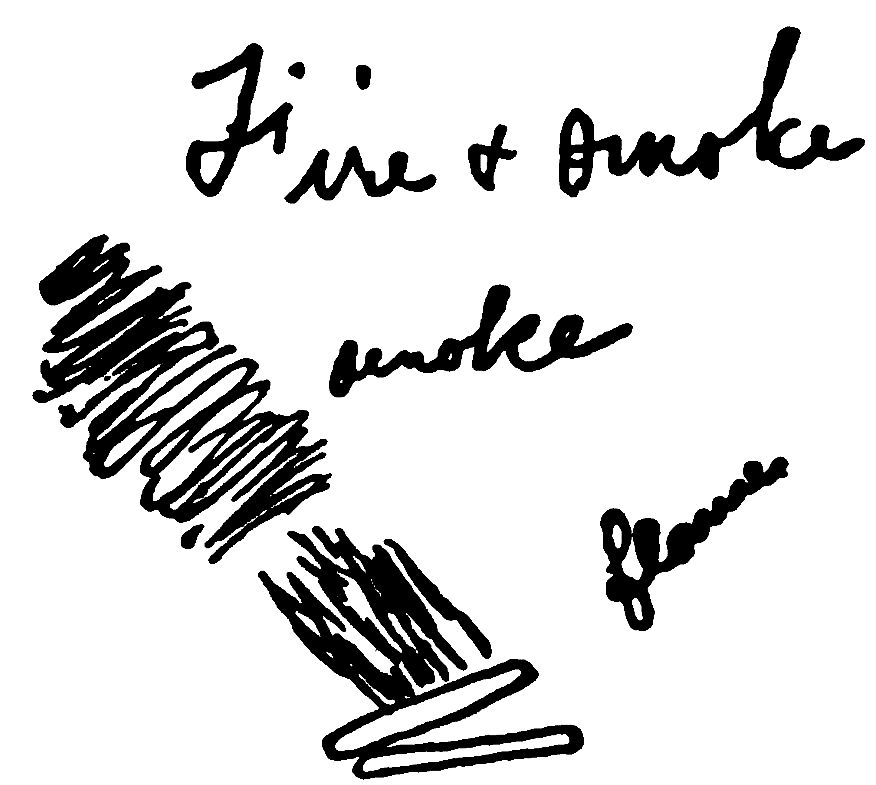 Fire & smoke
smoke
flame